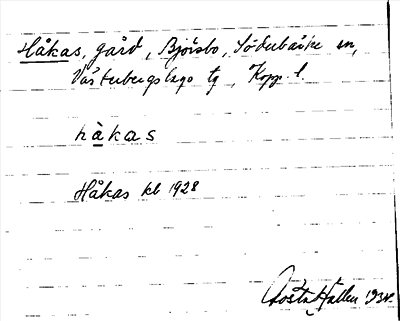 Håkas, gård, Bjösbo, Söderbärke sn,
Västerbergslags tg, Kopp. l.
hàkas
Håkas kb 1928
Gösta Hallen 1934.